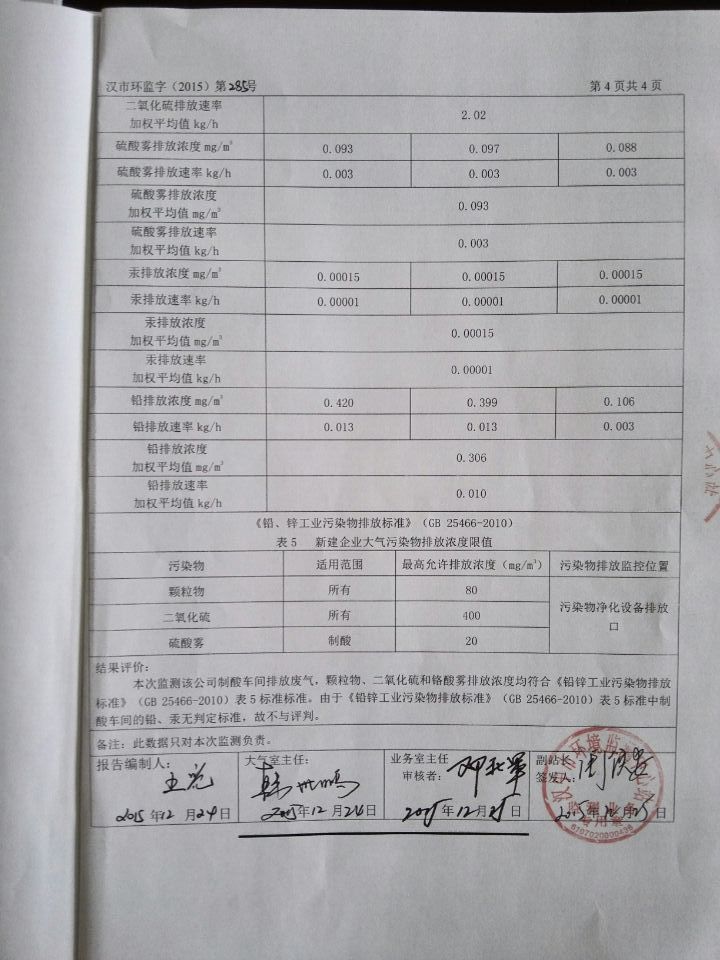 汉市环监字（2015）第285号 第 4 页共 4 页
二氧化硫排放速率
加权平均值 kg/h
2.02
硫酸雾排放浓度 mg/m³ 0.093 0.097 0.088
硫酸雾排放速率 kg/h 0.003 0.003 0.003
硫酸雾排放浓度
加权平均值 mg/m³
0.093
硫酸雾排放速率
加权平均值 kg/h
0.003
汞排放浓度 mg/m³ 0.00015 0.00015 0.00015
汞排放速率 kg/h 0.00001 0.00001 0.00001
汞排放浓度
加权平均值 mg/m³
0.00015
汞排放速率
加权平均值 kg/h
0.00001
铅排放浓度 mg/m³ 0.420 0.399 0.106
铅排放速率 kg/h 0.013 0.013 0.003
铅排放浓度
加权平均值 mg/m³
0.306
铅排放速率
加权平均值 kg/h
0.010
《铅、锌工业污染物排放标准》（GB 25466-2010）
表 5 新建企业大气污染物排放浓度限值
污染物 适用范围 最高允许排放浓度（mg/m³） 污染物排放监控位置
颗粒物 所有 80
二氧化硫 所有 400
硫酸雾 制酸 20
污染物净化设备排放
口
结果评价：
本次监测该公司制酸车间排放废气，颗粒物、二氧化硫和铬酸雾排放浓度均符合《铅锌工业污染物排放
标准》（GB 25466-2010）表 5 标准标准。由于《铅锌工业污染物排放标准》（GB 25466-2010）表 5 标准中制
酸车间的铅、汞无判定标准，故不与评判。
备注：此数据只对本次监测负责。
报告编制人： 大气室主任： 业务室主任 副站长
审核者： 签发人：
2015 年 12 月 24 日 2015 年 12 月 24 日 2015 年 12 月 25 日 2015 年 12 月 25 日